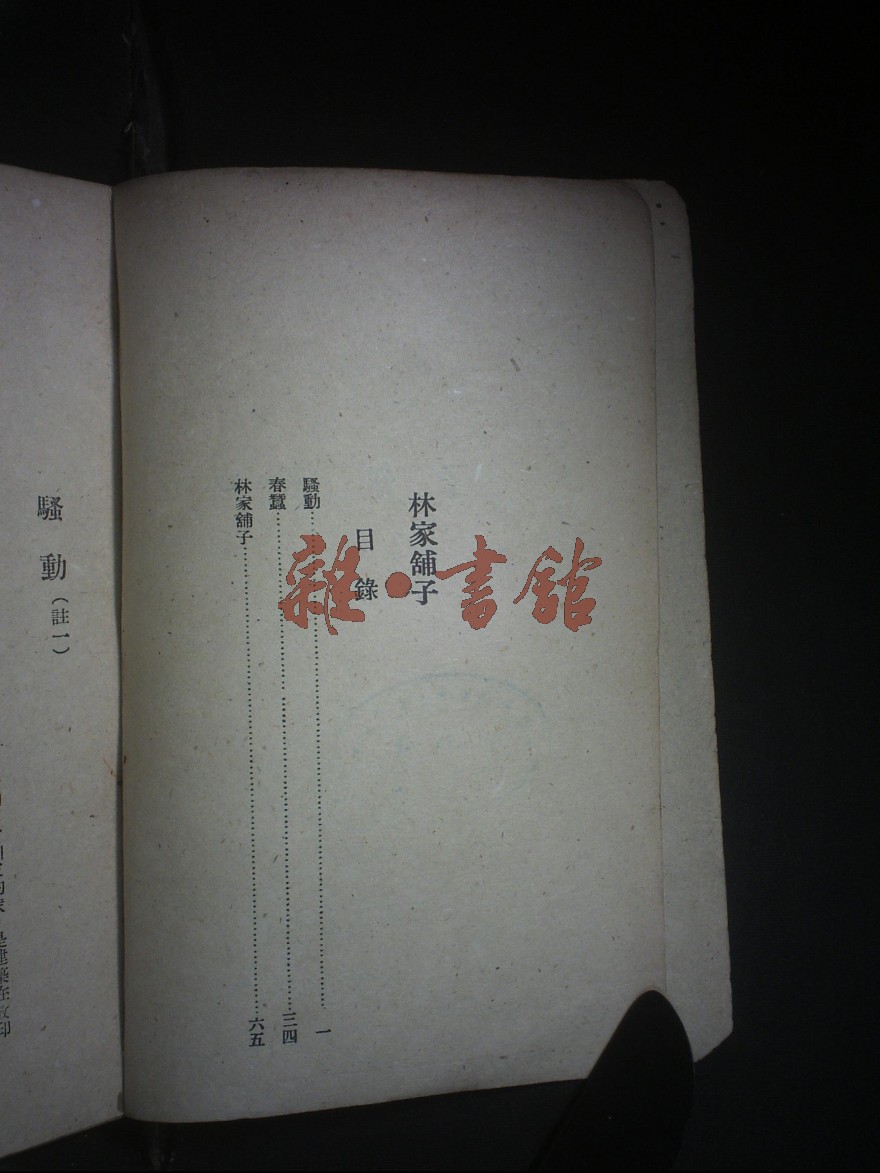 林家舖子
目錄
騷動……一
春蠶……三四
林家舖子……六五
雜·書館
騷動(註一)
是建築在